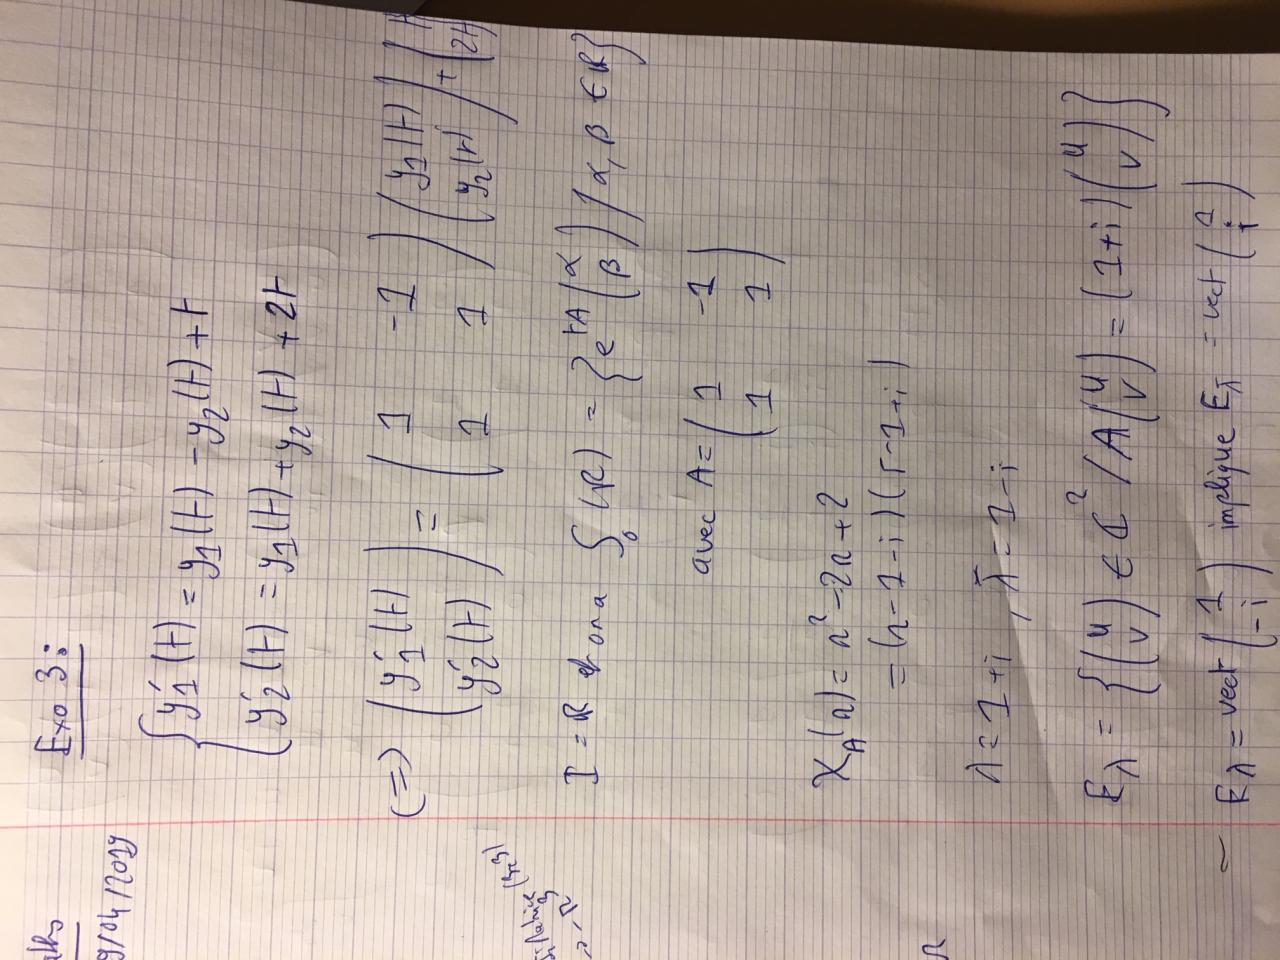 Exo 3:
{ y1'(t) = y1(t) - y2(t) + t
y2'(t) = y1(t) + y2(t) + 2t
(=>) (y1'(t) / y2'(t)) = (1 -1 / 1 1) (y1(t) / y2(t)) + (t / 2t)
I = R et on a S0(R) = { e^{tA} (α / β) / α, β ∈ R }
avec A = (1 -1 / 1 1)
χA(r) = r² - 2r + 2
= (r - 1 - i)(r - 1 + i)
λ = 1 + i , λ̄ = 1 - i
Eλ = { (u / v) ∈ C² / A(u / v) = (1+i)(u / v) }
Eλ = vect (1 / -i) implique Eλ̄ = vect (1 / i)
/04/2019